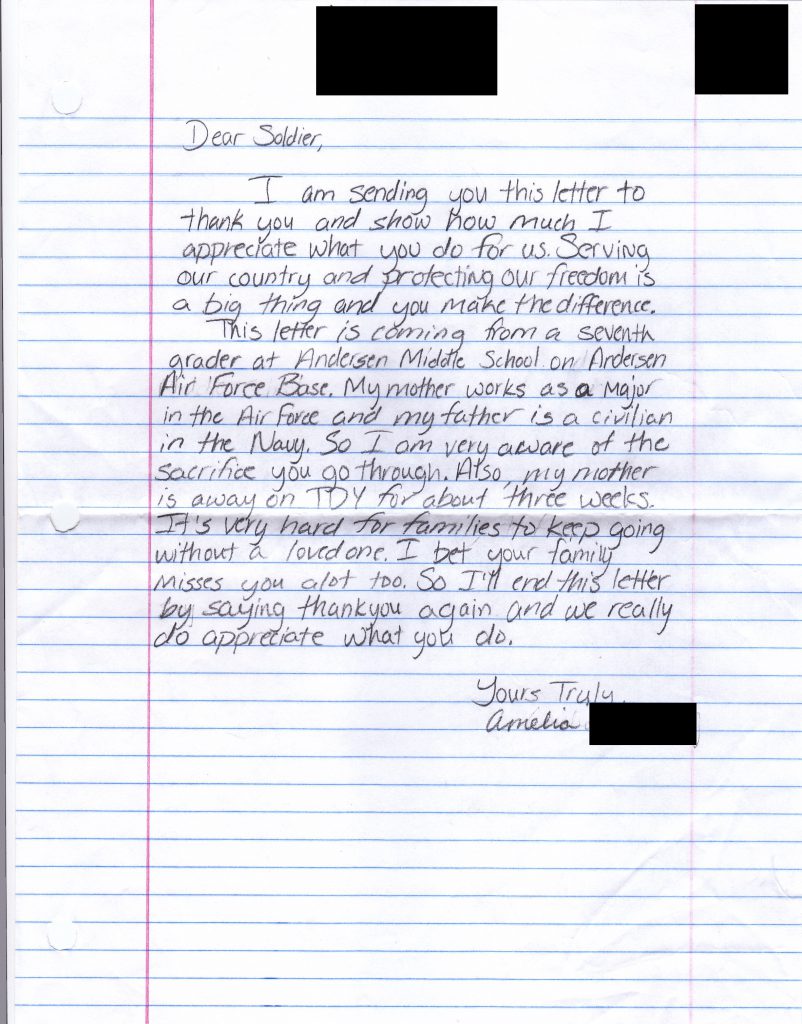 Dear Soldier,
I am sending you this letter to
thank you and show how much I
appreciate what you do for us. Serving
our country and protecting our freedom is
a big thing and you make the difference.
This letter is coming from a seventh
grader at Andersen Middle School on Andersen
Air Force Base. My mother works as a Major
in the Air Force and my father is a civilian
in the Navy. So I am very aware of the
sacrifice you go through. Also, my mother
is away on TDY for about three weeks.
It's very hard for families to keep going
without a loved one. I bet your family
misses you alot too. So I'll end this letter
by saying thankyou again and we really
do appreciate what you do.
Yours Truly,
Amelia